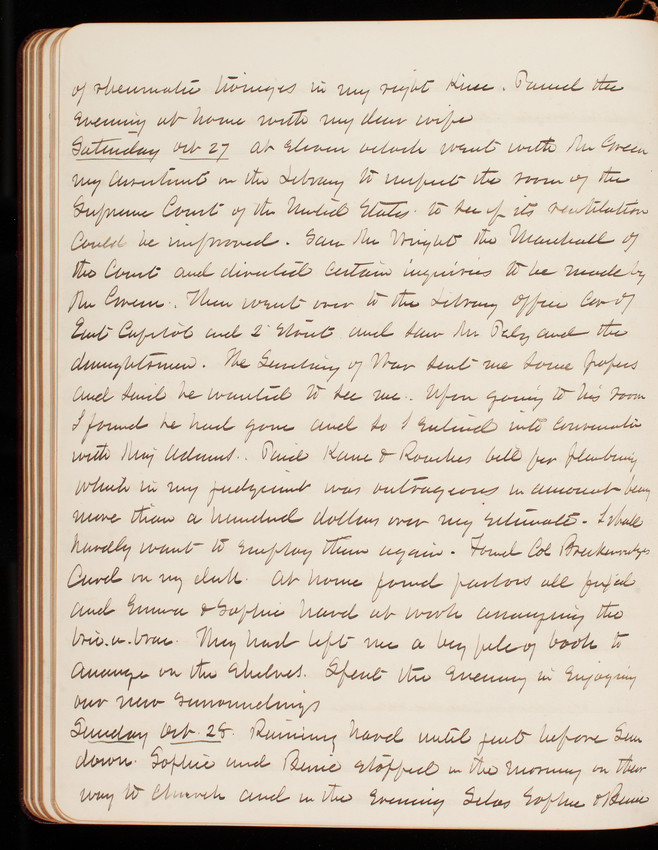 of rheumatic twinges in my right Knee. Passed the
evening at home with my dear wife
Saturday Oct 27 at Eleven oclock went with Mr Green
my assistant on the Library to inspect the room of the
Supreme Court of the United States to see if its ventilation
could be improved. Saw Mr Wright the Marshall of
the Court and directed certain inquiries to be made by
Mr Green. Then went over to the Library office Cor of
East Capitol and 2d Street and saw Mr Pelz and the
draughtsmen. The Secretary of War sent me some papers
and said he wanted to see me. Upon going to his room
I found he had gone and so I entered into conversation
with Maj Adams. Paid Kane & Roaches bill for plumbing
which in my judgment was outrageous in amount being
more than a hundred dollars over my estimate. I shall
hardly want to employ them again. Found Col Breckenridges
Card on my desk. At home found parlors all fixed
and Emma & Sophie hard at work arranging the
bric.a.brac. They had left me a big pile of books to
arrange on the shelves. Spent the evening in enjoying
our new surroundings
Sunday Oct. 28. Raining hard until just before Sun
down. Sophie and Bessie stopped in the morning on their
way to church and in the evening Silas Sophie & Bessie